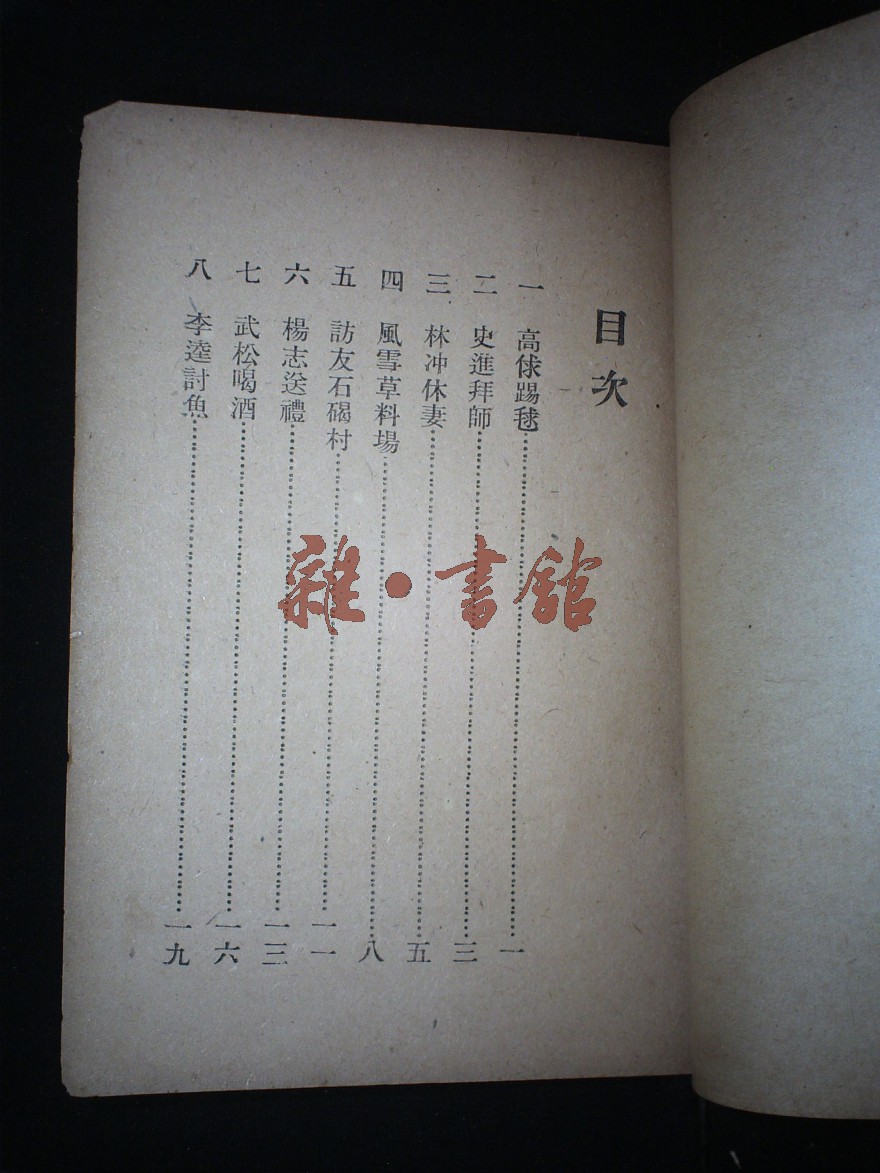 目次
一 高俅踢毬……一
二 史進拜師……三
三 林冲休妻……五
四 風雪草料場……八
五 訪友石碣村……一一
六 楊志送禮……一三
七 武松喝酒……一六
八 李逵討魚……一九
雜·書館